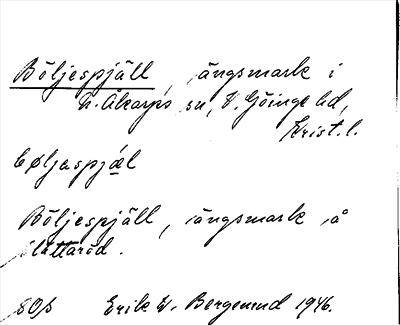 Böljespjäll, ängsmark i
N. Åkarps sn, V. Göinge hd,
Krist. l.
bøljaspjæl
Böljespjäll, ängsmark å
Slättaröd.
80/s Erik W. Bergemund 1946.